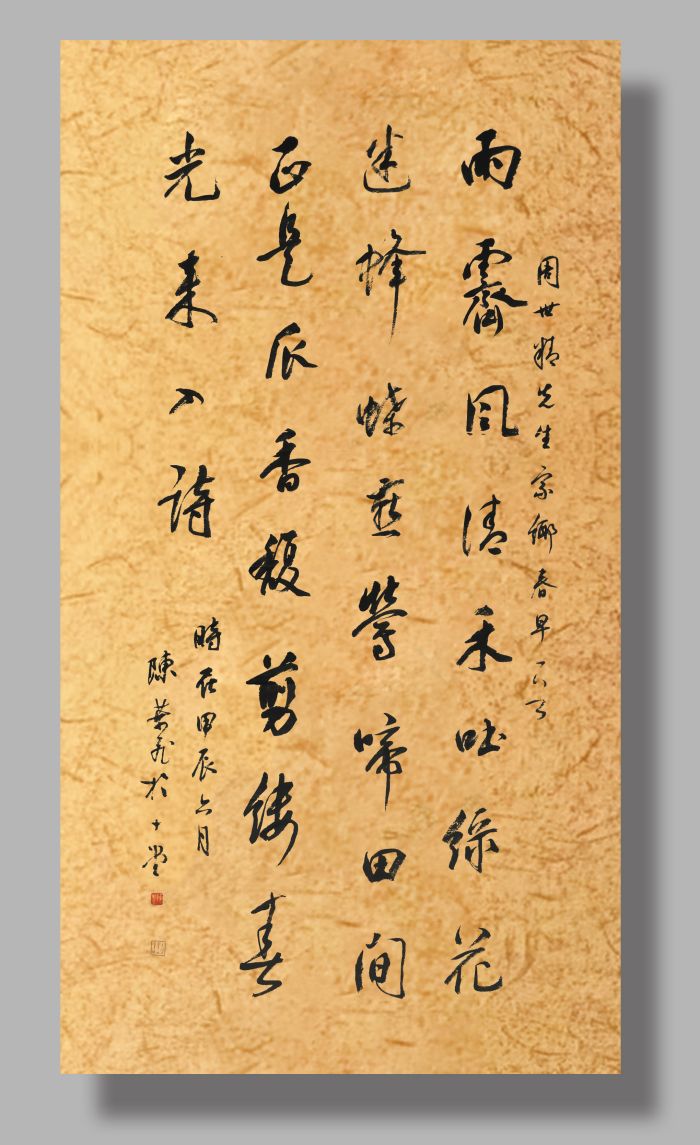 周世精先生家鄉春早
雨霽風清禾吐綠花
迷蜂蝶燕鶯啼田間
正是瓜香馥剪縷春
光來入詩
時在甲辰六月
陳葉飛於十堂